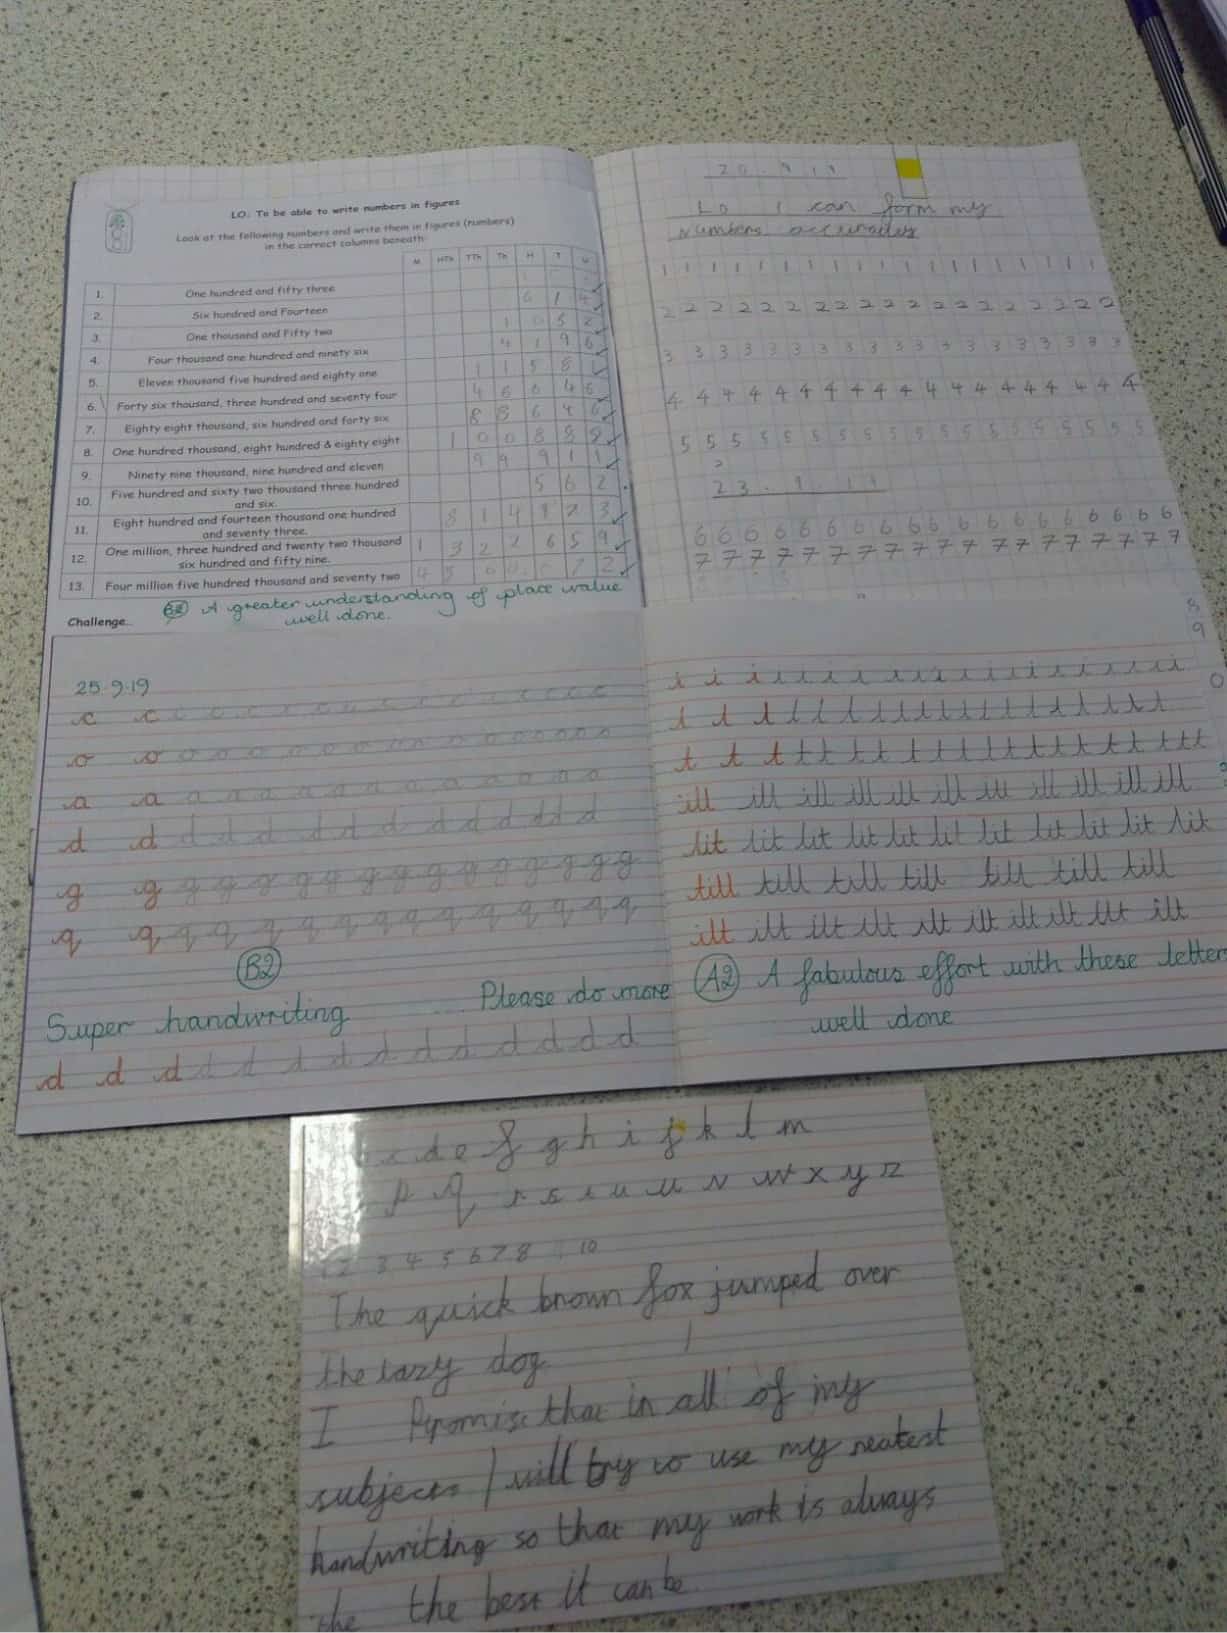 LO: To be able to write numbers in figures
Look at the following numbers and write them in figures (numbers)
in the correct columns beneath
M HTh TTh Th H T U
1. One hundred and fifty three
2. Six hundred and Fourteen 6 1 4
3. One thousand and Fifty two 1 0 5 2
4. Four thousand one hundred and ninety six 4 1 9 6
5. Eleven thousand five hundred and eighty one 1 1 5 8
6. Forty six thousand, three hundred and seventy four
7. Eighty eight thousand, six hundred and forty six 8 8 6 4 6
8. One hundred thousand, eight hundred & eighty eight 1 0 0 8 8 8
9. Ninety nine thousand, nine hundred and eleven 9 9 9 1 1
10. Five hundred and sixty two thousand three hundred
and six. 5 6 2
11. Eight hundred and fourteen thousand one hundred
and seventy three. 8 1 4 1 7 3
12. One million, three hundred and twenty two thousand
six hundred and fifty nine. 1 3 2 2 6 5 9
13. Four million five hundred thousand and seventy two
B2 A greater understanding of place value
well done.
Challenge...
20.9.19
LO I can form my
numbers accurately
1 1 1 1 1 1 1 1 1 1 1 1 1 1 1 1 1 1 1
2 2 2 2 2 2 2 2 2 2 2 2 2 2 2 2 2 2 2
3 3 3 3 3 3 3 3 3 3 3 3 3 3 3 3 3 3 3
4 4 4 4 4 4 4 4 4 4 4 4 4 4 4 4 4 4
5 5 5 5 5 5 5 5 5 5 5 5 5 5 5 5 5 5
23.9.19
6 6 6 6 6 6 6 6 6 6 6 6 6 6 6 6 6 6 6
7 7 7 7 7 7 7 7 7 7 7 7 7 7 7 7 7 7 7
8
9
0
25.9.19
c c c c c c c c c c c c c c
o o o o o o o o o o o o o o
a a a a a a a a a a a a a
d d d d d d d d d d d d d d
g g g g g g g g g g g g g g g
q q q q q q q q q q q q q q
B2
Super handwriting ... Please do more
d d d d d d d d d d d d d d d
i i i i i i i i i i i i i i i i i i i i
l l l l l l l l l l l l l l l l l l l
t t t t t t t t t t t t t t t t t t t
ill ill ill ill ill ill ill ill ill ill ill
lit lit lit lit lit lit lit lit lit lit lit
till till till till till till till
ilt ilt ilt ilt ilt ilt ilt ilt ilt ilt
A2 A fabulous effort with these letter
well done
c d e f g h i j k l m
p q r s t u u v w x y z
1 2 3 4 5 6 7 8 10
The quick brown fox jumped over
the lazy dog.
I Promise that in all of my
subjects I will try to use my neatest
handwriting so that my work is always
the the best it can be.